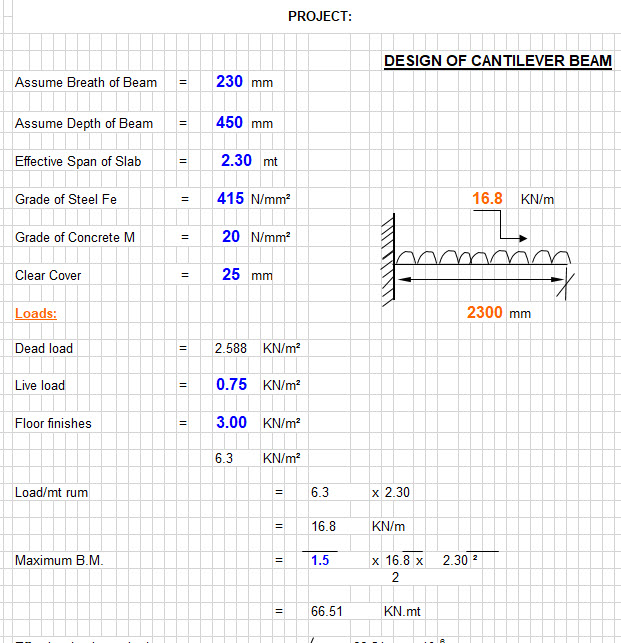 PROJECT:
DESIGN OF CANTILEVER BEAM
Assume Breath of Beam = 230 mm
Assume Depth of Beam = 450 mm
Effective Span of Slab = 2.30 mt
Grade of Steel Fe = 415 N/mm² 16.8 KN/m
Grade of Concrete M = 20 N/mm²
Clear Cover = 25 mm
Loads: 2300 mm
Dead load = 2.588 KN/m²
Live load = 0.75 KN/m²
Floor finishes = 3.00 KN/m²
6.3 KN/m²
Load/mt rum = 6.3 x 2.30
= 16.8 KN/m
Maximum B.M. = 1.5 x 16.8 x 2.30 ²
2
= 66.51 KN.mt